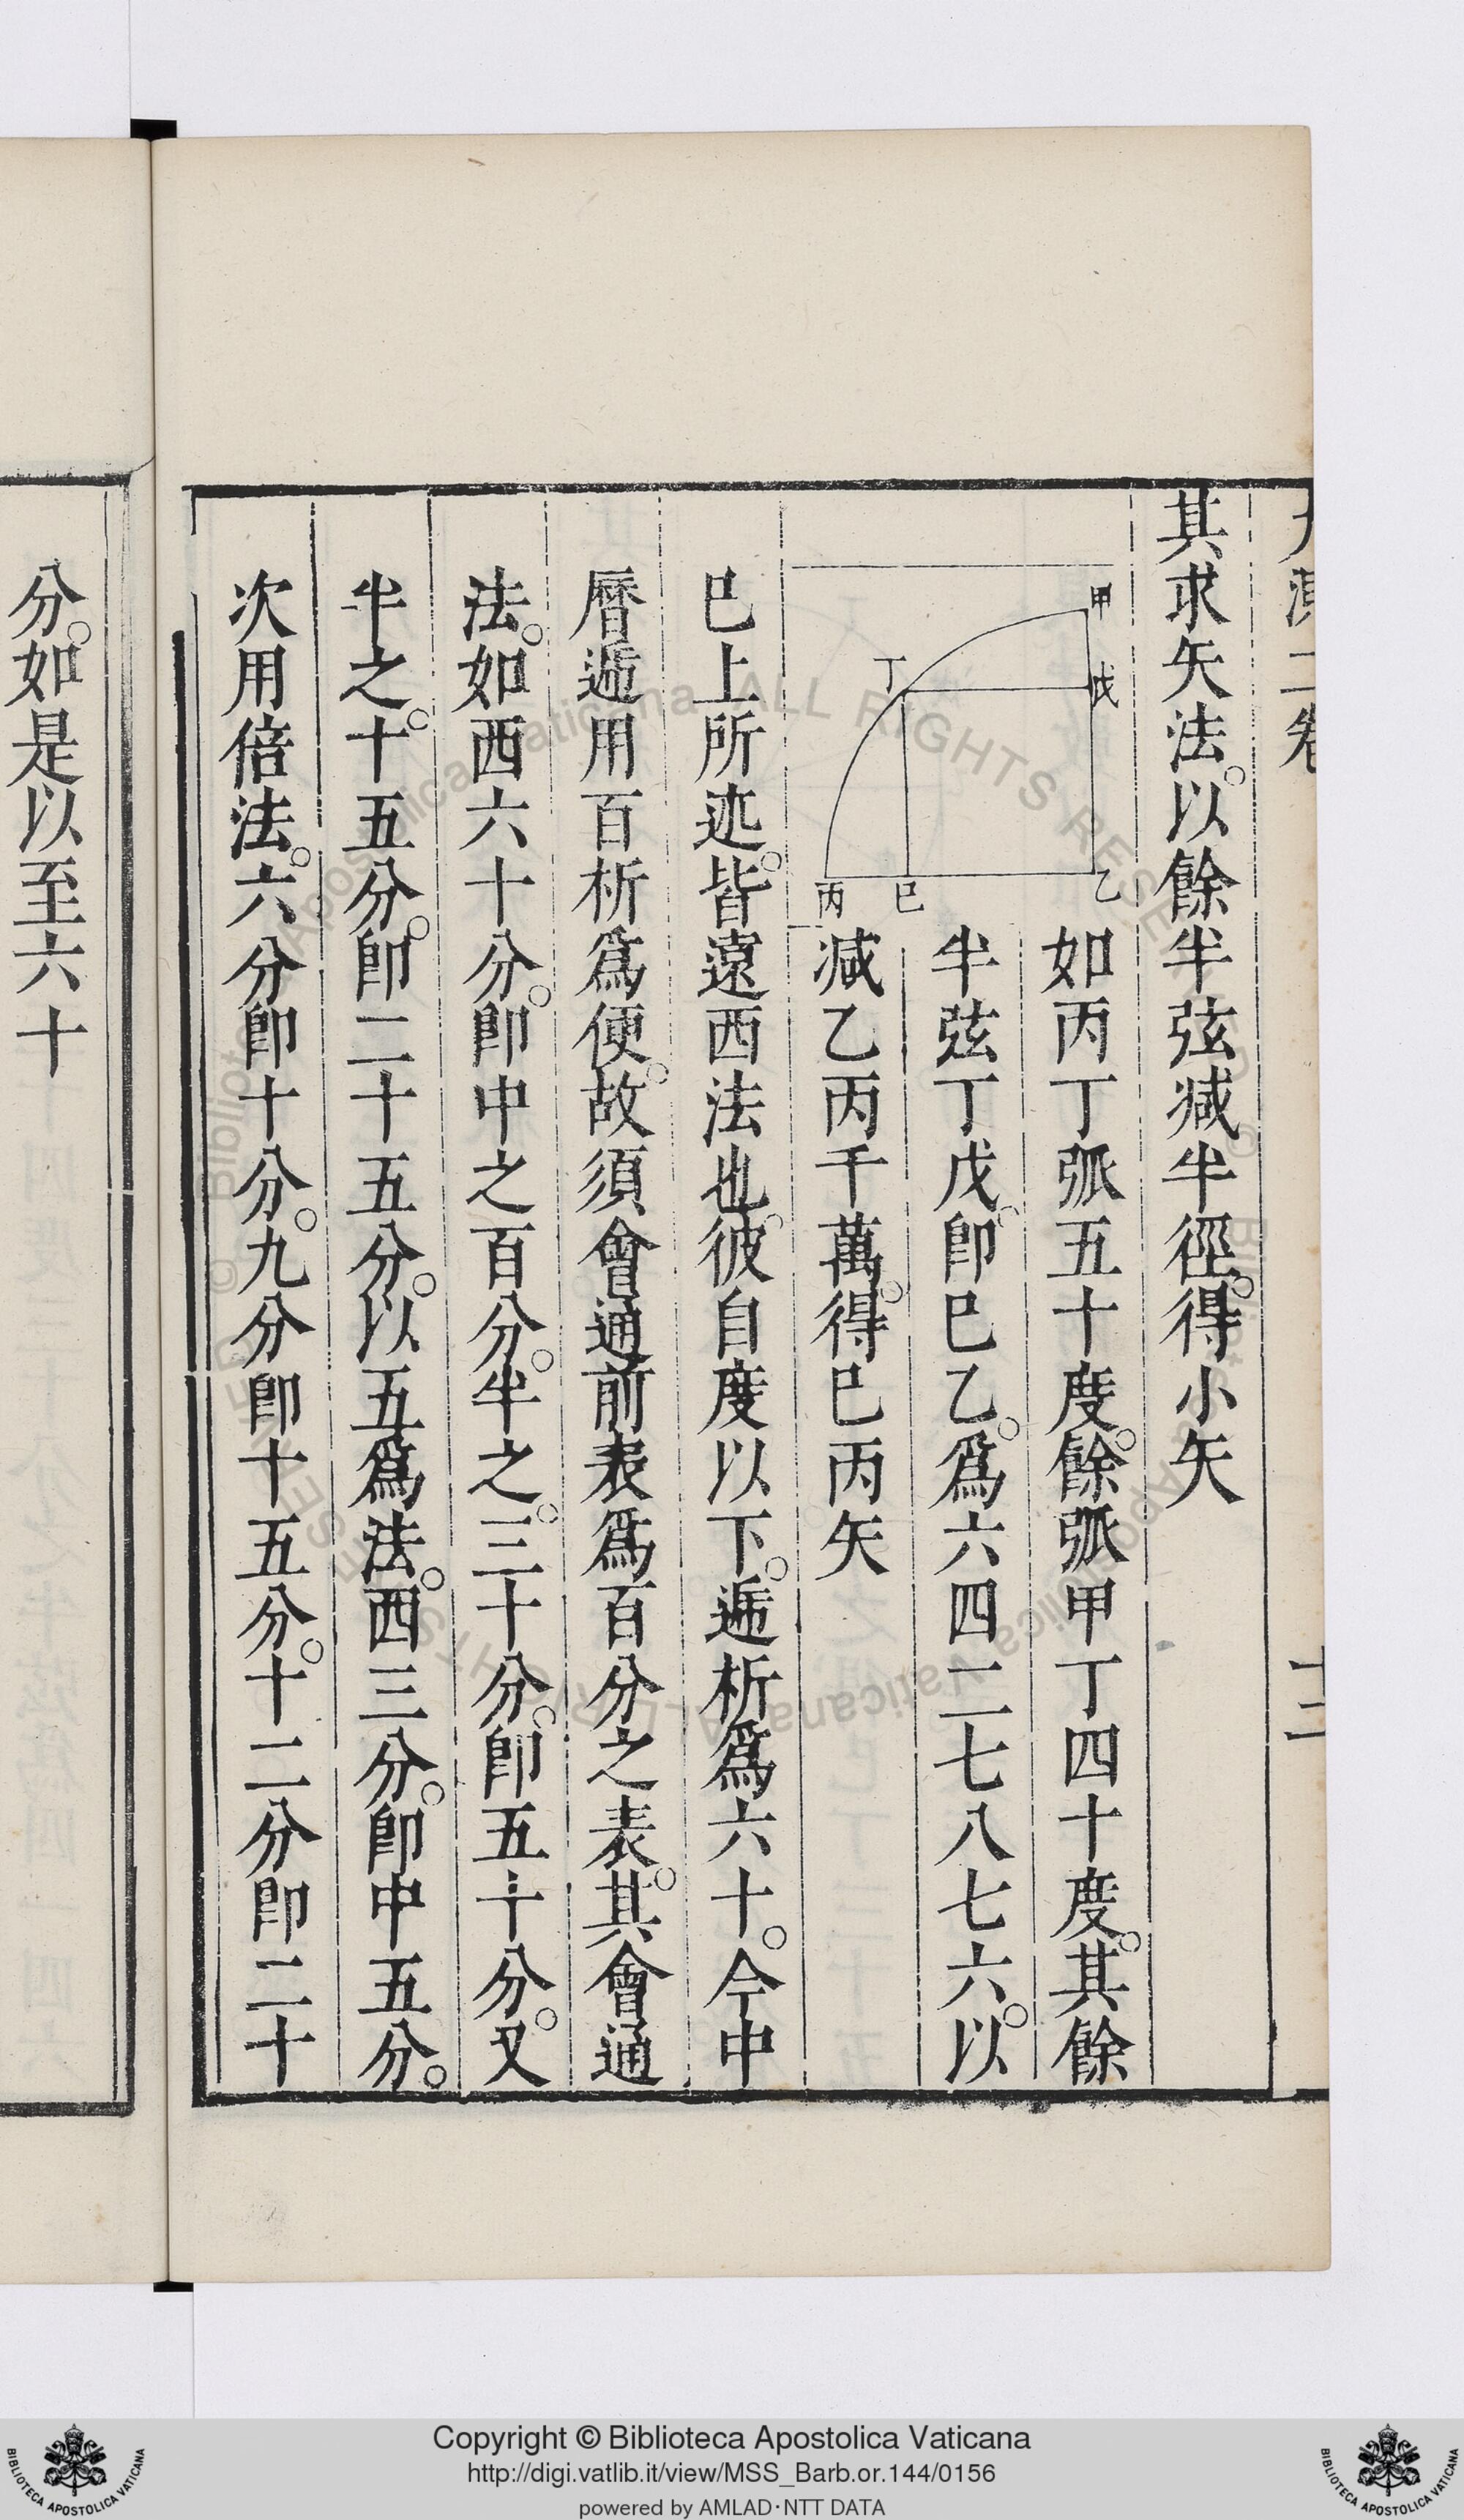 二卷
十二
其求矢法。以餘半弦減半徑。得小矢
甲
戊
丁
乙
巳
丙
如丙丁弧五十度。餘弧甲丁四十度。其餘
半弦丁戊。卽巳乙。爲六四二七八七六。以
減乙丙千萬。得巳丙矢
巳上所述。皆遠西法也。彼自度以下。遞析爲六十。今中
曆遞用百析爲便。故須會通前表爲百分之表。其會通
法。如西六十分。卽中之百分。半之。三十分。卽五十分。又
半之。十五分。卽二十五分。以五爲法。西三分。卽中五分。
次用倍法。六分卽十分。九分卽十五分。十二分卽二十
分。如是以至六十
Copyright © Biblioteca Apostolica Vaticana
http://digi.vatlib.it/view/MSS_Barb.or.144/0156
powered by AMLAD·NTT DATA
BIBLIOTECA APOSTOLICA VATICANA
BIBLIOTECA APOSTOLICA VATICANA